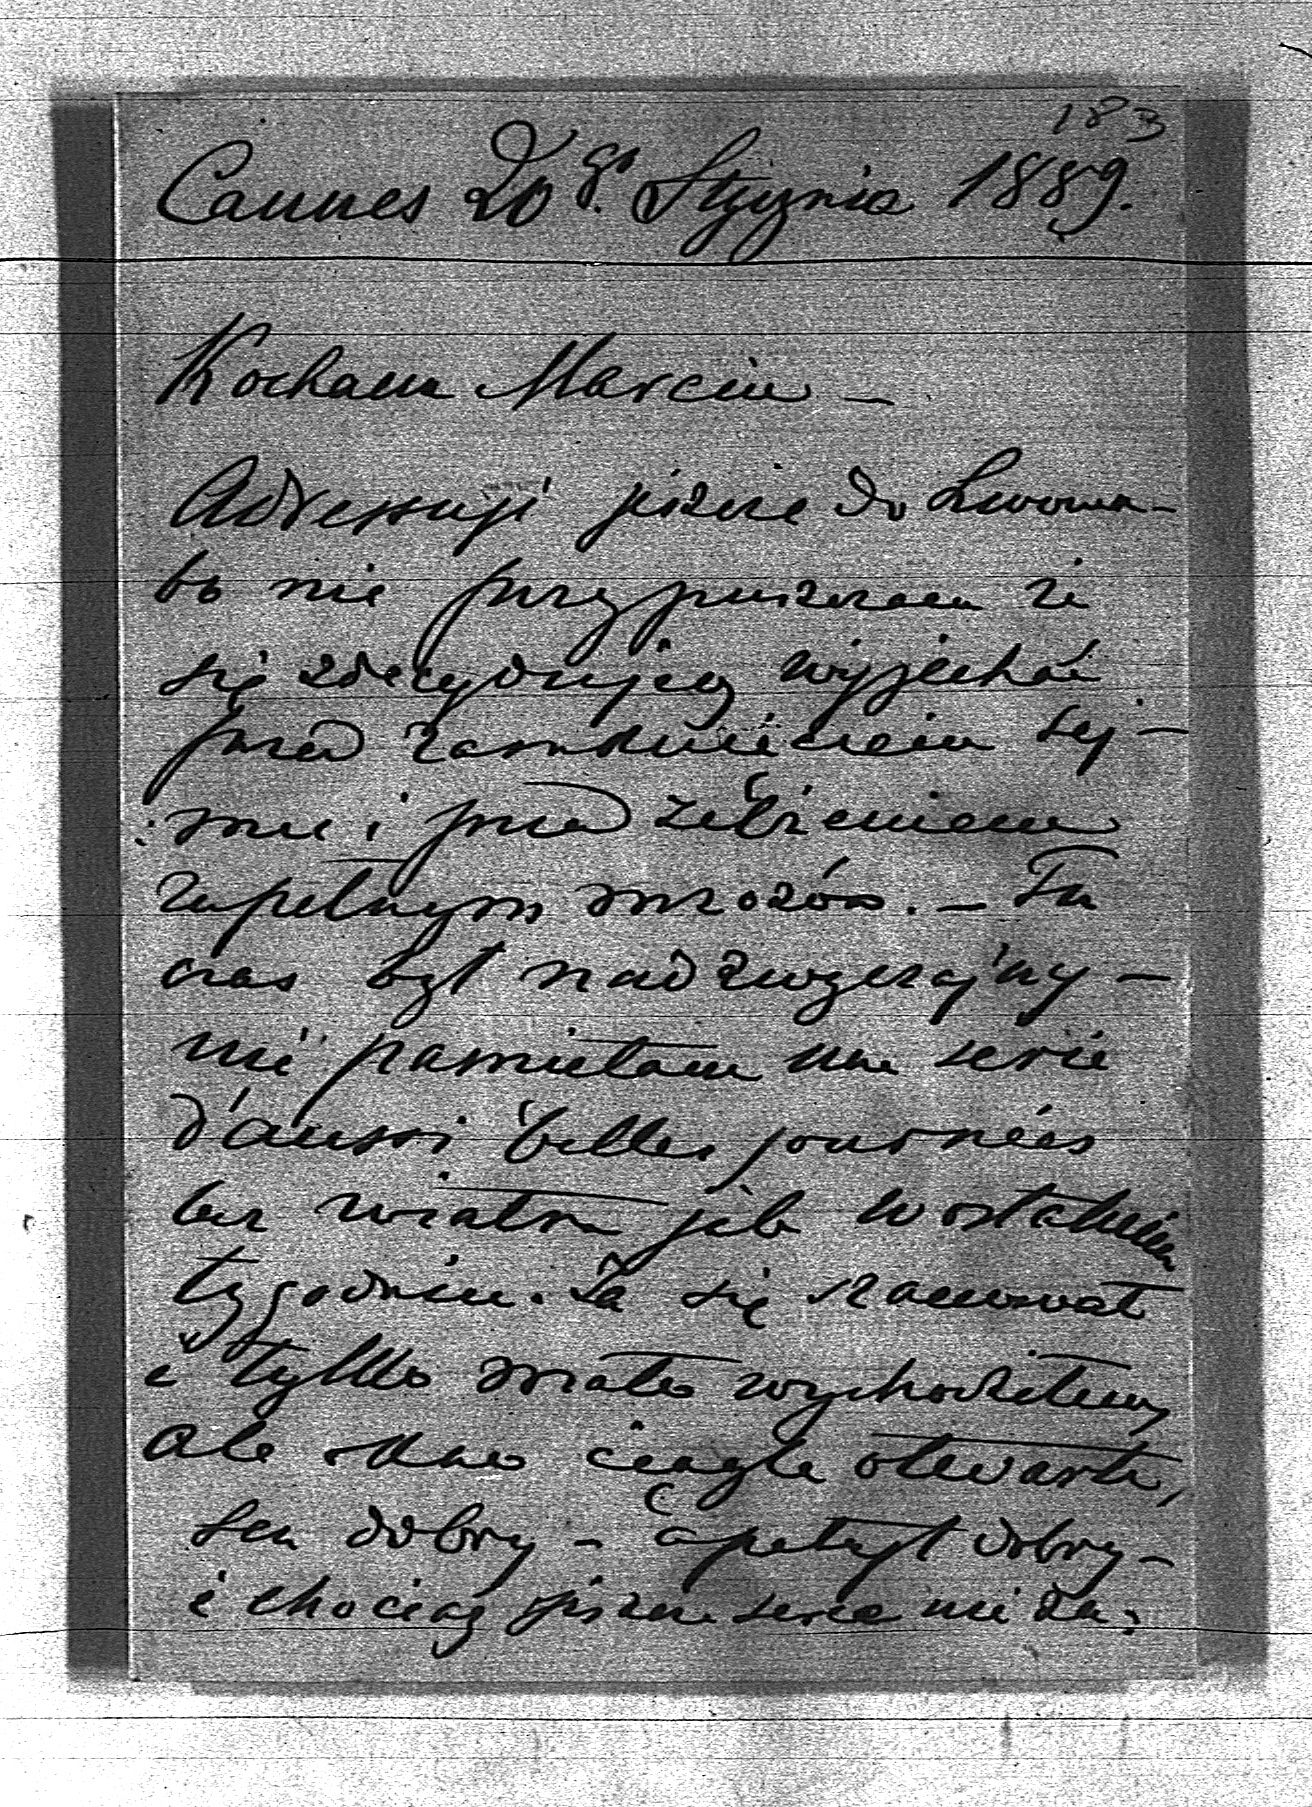 183
Cannes 20go Stycznia 1889.
Kochany Marcinie –
Adressuję jeszcze do Lwowa –
bo nie przypuszczam że
się zdecydujecie wyjechać
przed zamknięciem Sej-
mu i przed zelżeniem
zupełnym mrozów. – Tu
czas był nadzwyczajny –
nie pamiętam une serie
d'aussi belles journées
bez wiatru jak w ostatnim
tygodniu. Ja się szanował
i tylko mało wychodziłem,
ale okno ciągle otwarte,
sen dobry – apetyt dobry –
i chociaż jeszcze serce nie za-